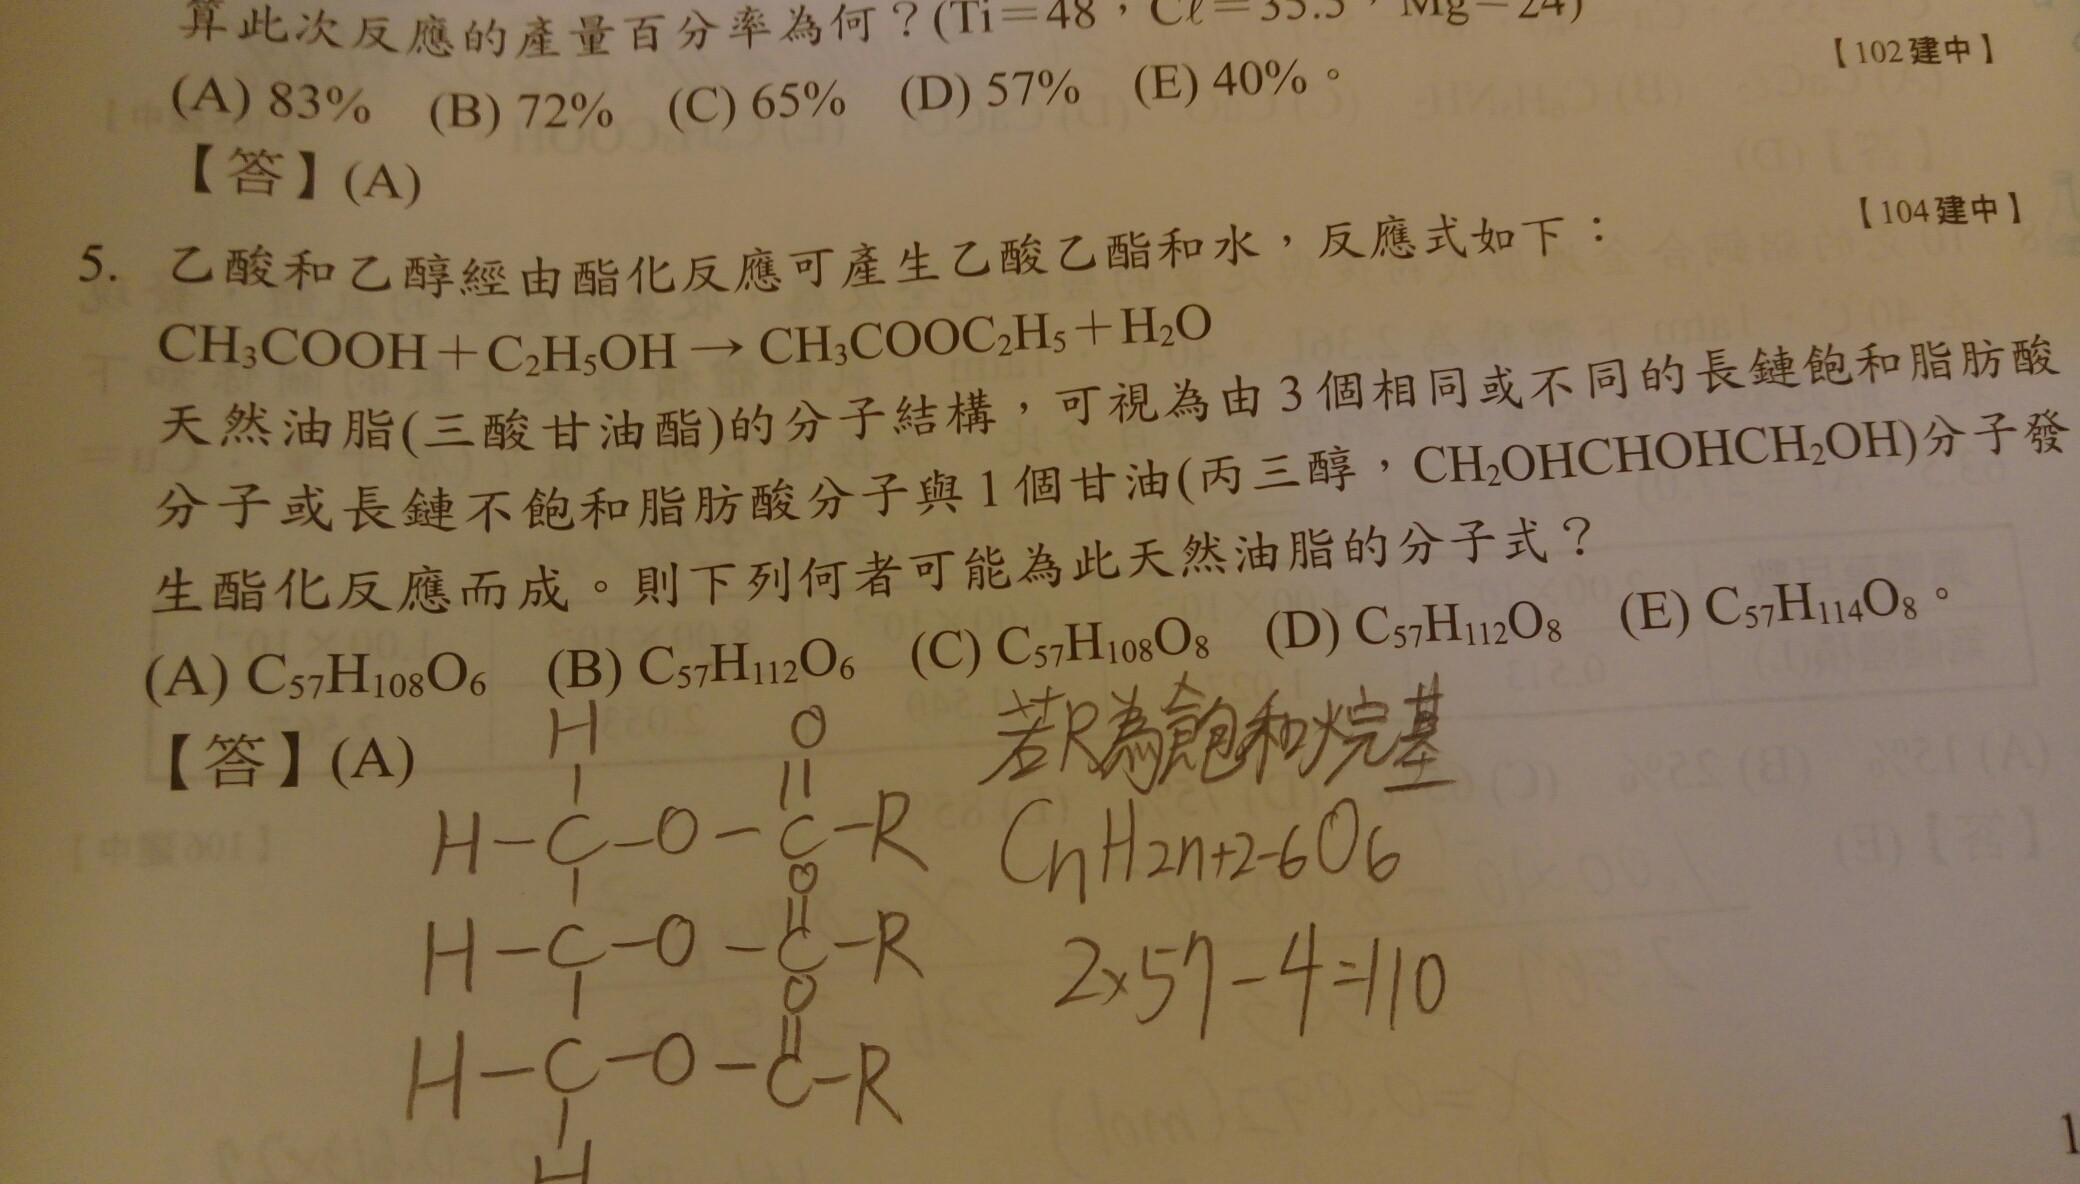 算此次反應的產量百分率為何？(Ti＝48，Cℓ＝35.5，Mg＝24)
【102建中】
(A) 83%　(B) 72%　(C) 65%　(D) 57%　(E) 40%。
【答】(A)
【104建中】
5. 乙酸和乙醇經由酯化反應可產生乙酸乙酯和水，反應式如下：
CH₃COOH＋C₂H₅OH → CH₃COOC₂H₅＋H₂O
天然油脂(三酸甘油酯)的分子結構，可視為由 3 個相同或不同的長鏈飽和脂肪酸
分子或長鏈不飽和脂肪酸分子與 1 個甘油(丙三醇，CH₂OHCHOHCH₂OH)分子發
生酯化反應而成。則下列何者可能為此天然油脂的分子式？
(A) C₅₇H₁₀₈O₆　(B) C₅₇H₁₁₂O₆　(C) C₅₇H₁₀₈O₈　(D) C₅₇H₁₁₂O₈　(E) C₅₇H₁₁₄O₈。
【答】(A)
H　O
H－C－O－C－R
O
H－C－O－C－R
O
H－C－O－C－R
H
若R為飽和烷基
CnH2n+2-6O6
2×57－4=110
1